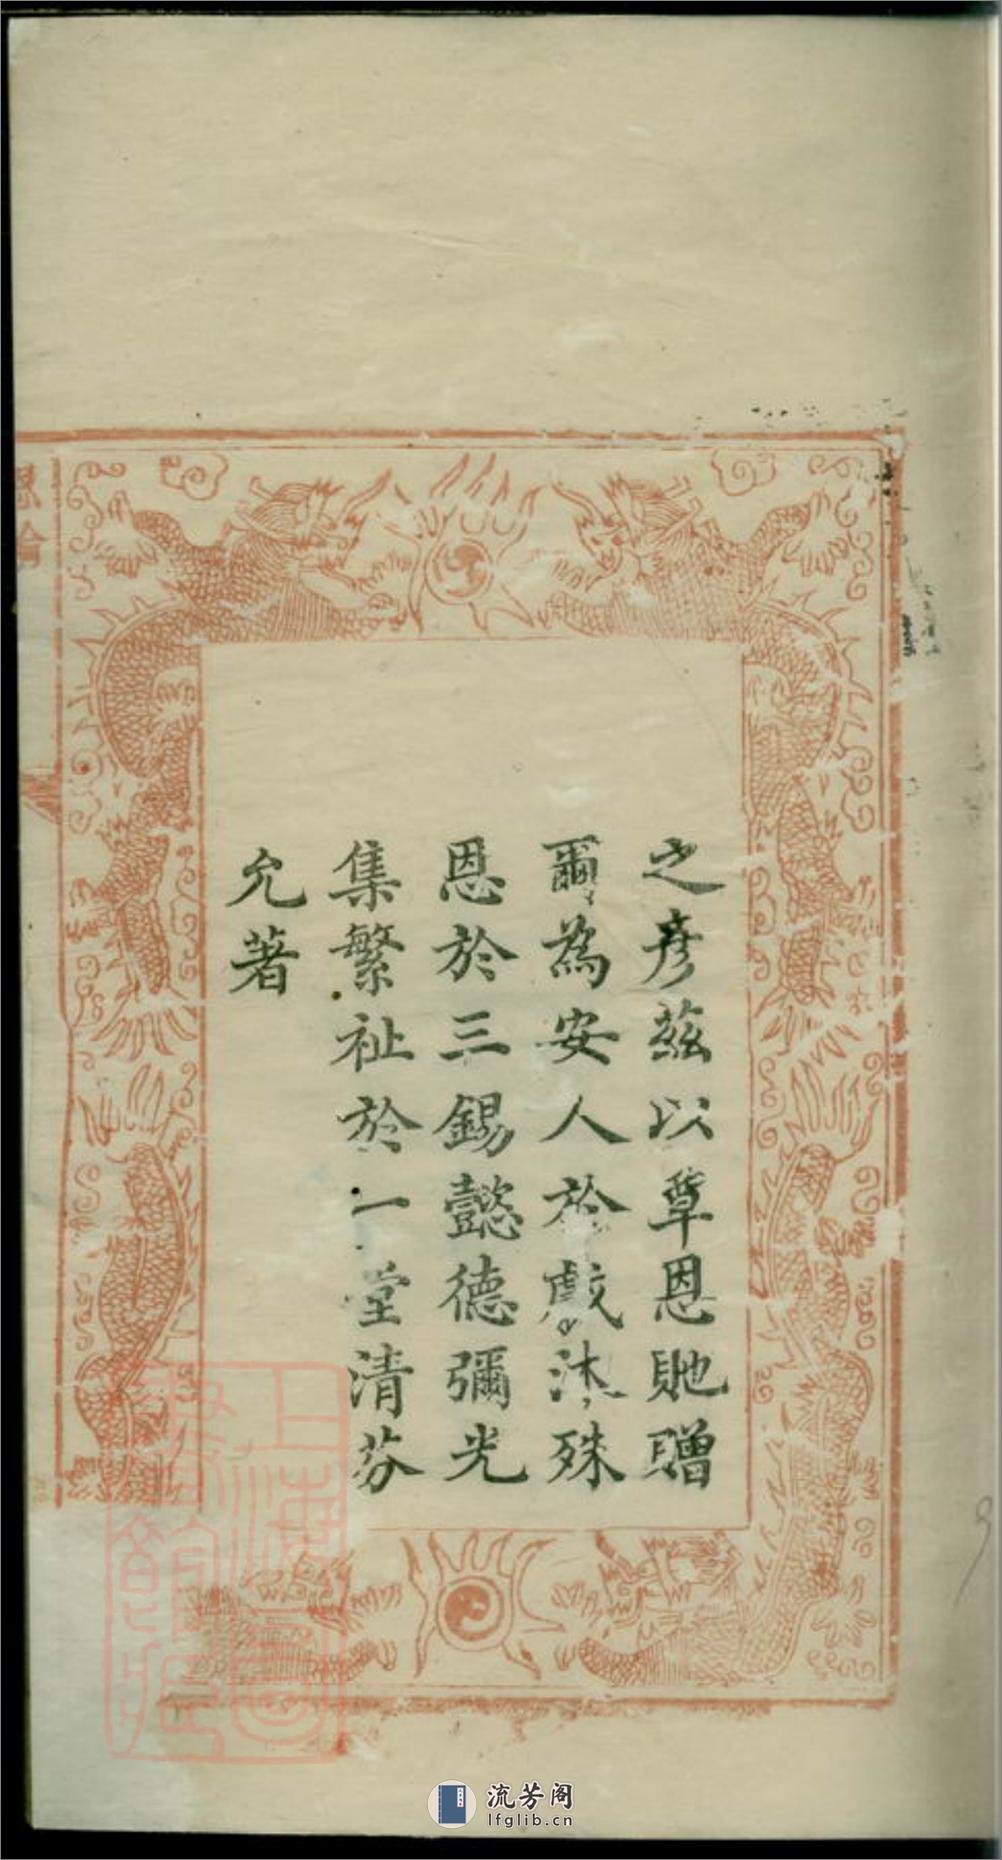 之彥茲以覃恩貤贈
爾為安人於戲沐殊
恩於三錫懿德彌光
集繁祉於一堂清芬
允著
恩綸
上海圖書館藏
流芳阁
lfglib.cn